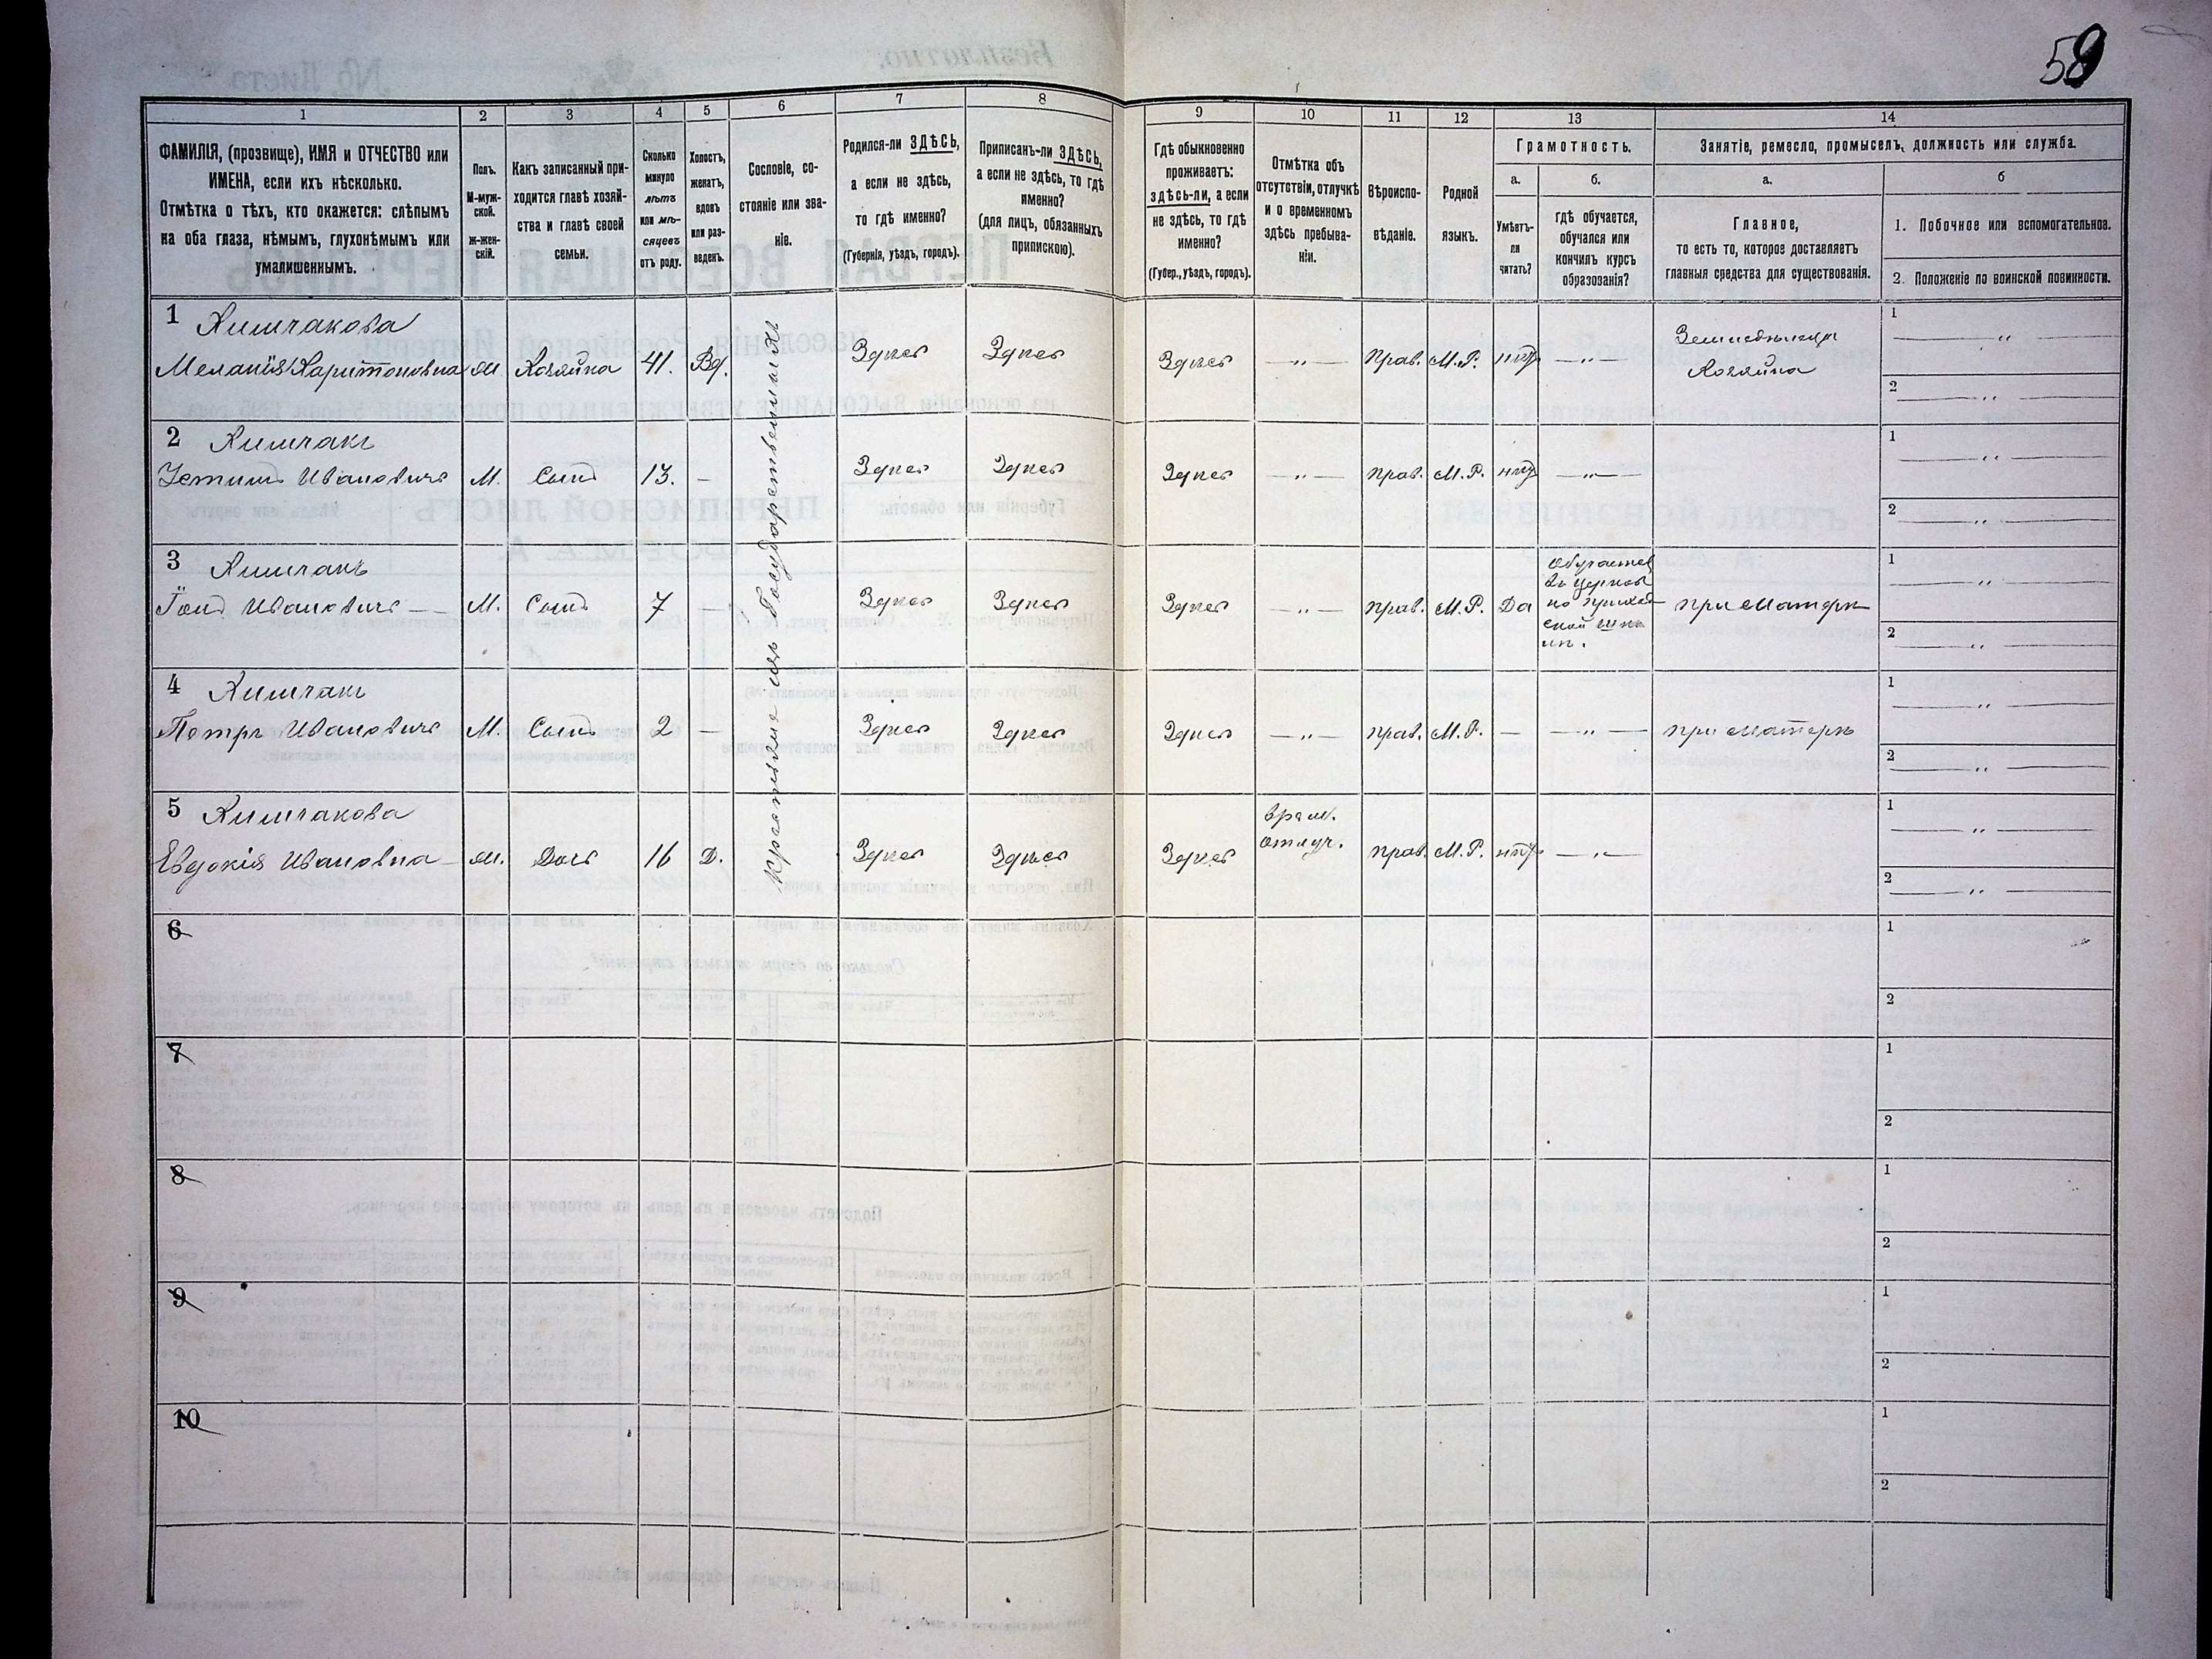 59
1
2
3
4
5
6
7
8
9
10
11
12
13
14
ФАМИЛІЯ, (прозвище), ИМЯ и ОТЧЕСТВО или
ИМЕНА, если ихъ нѣсколько.
Отмѣтка о тѣхъ, кто окажется: слѣпымъ
на оба глаза, нѣмымъ, глухонѣмымъ или
умалишеннымъ.
Полъ.
М-муж-
ской.
ж-жен-
скій.
Какъ записанный при-
ходится главѣ хозяй-
ства и главѣ своей
семьи.
Сколько
минуло
лѣтъ
или мѣ-
сяцевъ
отъ роду.
Холостъ,
женатъ,
вдовъ
или раз-
веденъ.
Сословіе, со-
стояніе или зва-
ніе.
Родился-ли ЗДѢСЬ,
а если не здѣсь,
то гдѣ именно?
(Губернія, уѣздъ, городъ).
Приписанъ-ли ЗДѢСЬ,
а если не здѣсь, то гдѣ
именно?
(для лицъ, обязанныхъ
припискою).
Гдѣ обыкновенно
проживаетъ:
здѣсь-ли, а если
не здѣсь, то гдѣ
именно?
(Губер., уѣздъ, городъ).
Отмѣтка объ
отсутствіи, отлучкѣ
и о временномъ
здѣсь пребыва-
ніи.
Вѣроиспо-
вѣданіе.
Родной
языкъ.
Грамотность.
а.
Умѣетъ-
ли
читать?
б.
гдѣ обучается,
обучался или
кончилъ курсъ
образованія?
Занятіе, ремесло, промыселъ, должность или служба.
а.
Главное,
то есть то, которое доставляетъ
главныя средства для существованія.
б
1. Побочное или вспомогательное.
2. Положеніе по воинской повинности.
1 Кишчакова
Меланія Харитоновна ж Хозяйка 41. Вд. Здѣсь Здѣсь Здѣсь — " — Прав. М.Р. нѣтъ — " — Земледѣлецъ
Хозяйка
1 — " —
2 — " —
Крестьяне изъ Государственныхъ
2 Кишчакъ
Устимъ Ивановичъ М. Сынъ 13. - Здѣсь Здѣсь Здѣсь — " — Прав. М.Р. нѣтъ — " —
1 — " —
2 — " —
3 Кишчакъ
Ивановичъ — М. Сынъ 7 — Здѣсь Здѣсь Здѣсь — " — Прав. М.Р. Да
Обучается
въ церков
но приход
ской шко
лѣ.
при матери
1 — " —
2 — " —
4 Кишчакъ
Петръ Ивановичъ М. Сынъ 2 — Здѣсь Здѣсь Здѣсь — " — Прав. М.Р. — — " — при матери
1 — " —
2 — " —
5 Кишчакова
Евдокія Ивановна ж. Дочь 16 Д. Здѣсь Здѣсь Здѣсь
врем.
отлуч.
Прав. М.Р. нѣтъ — " —
1 — " —
2 — " —
6
1
2
7
1
2
8
1
2
9
1
2
10
1
2